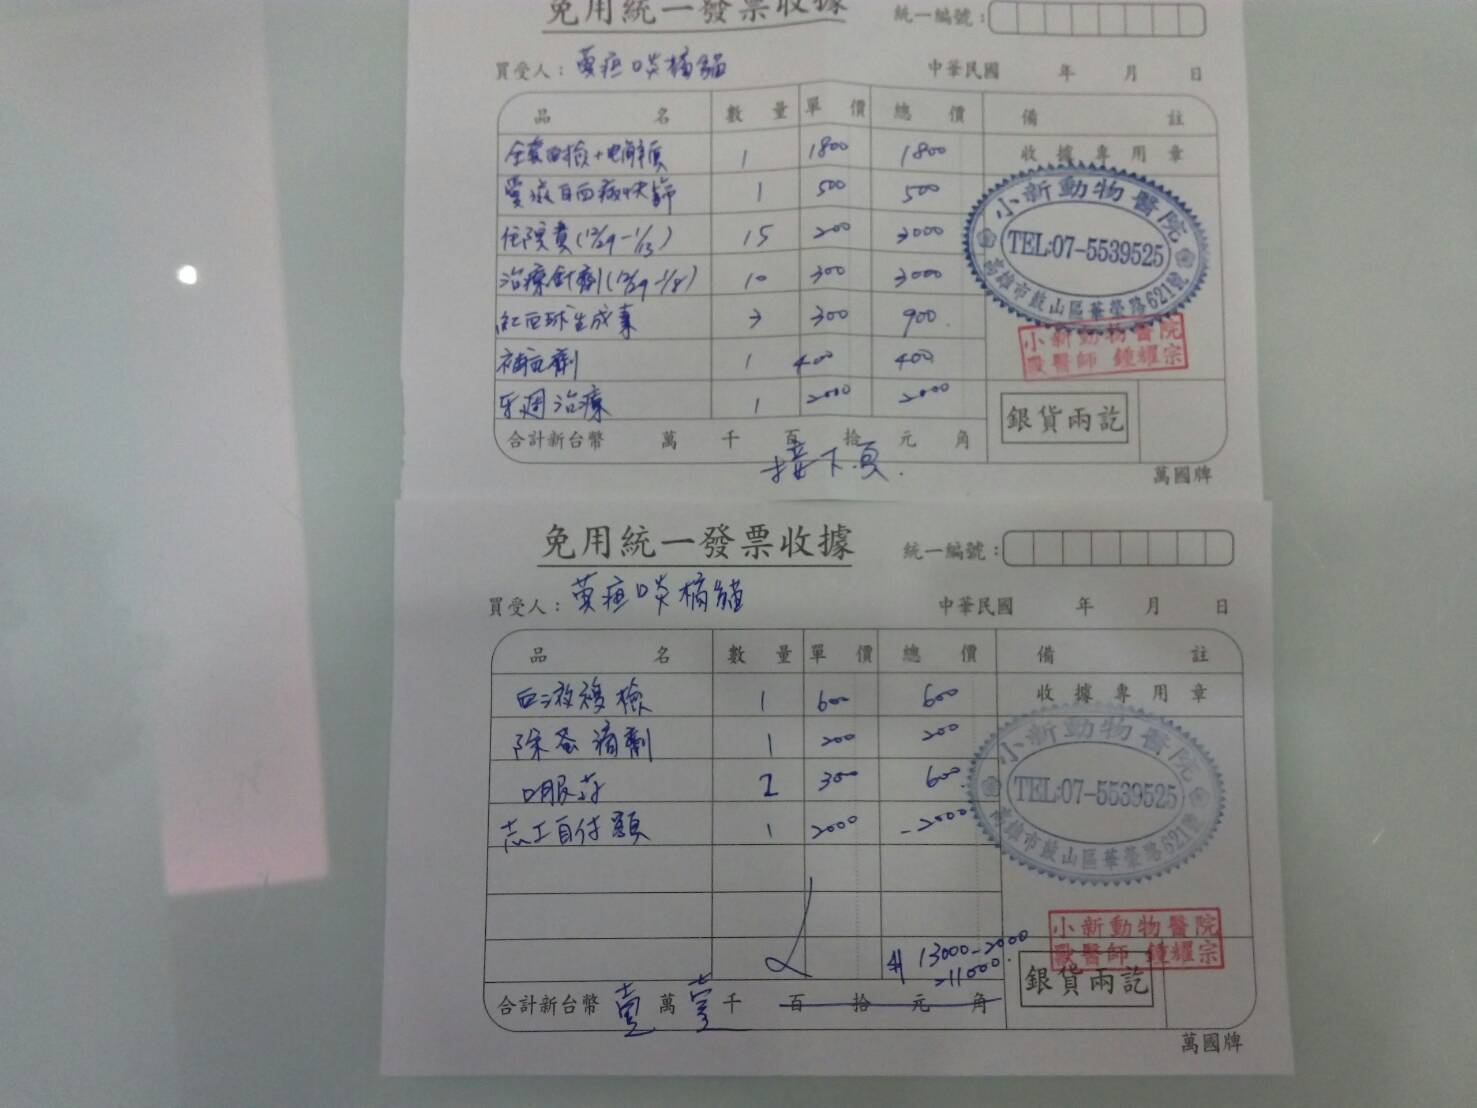 免用統一發票收據
統一編號：
買受人：黃疸啖橘貓
中華民國 年 月 日
品名 數量 單價 總價 備註
全套血檢+电解質 1 1800 1800 收據專用章
愛滋白血病快篩 1 500 500
住院費(12/29-1/13) 15 200 3000
治療針劑(12/29-1/8) 10 300 3000
紅血球生成素 3 300 900
補血劑 1 400 400
牙週治療 1 2000 2000
小新動物醫院
TEL:07-5539525
高雄市鼓山區華榮路621號
小新動物醫院
獸醫師 鍾耀宗
銀貨兩訖
合計新台幣 萬 千 百 拾 元 角
接下頁.
萬國牌
免用統一發票收據
統一編號：
買受人：黃疸啖橘貓
中華民國 年 月 日
品名 數量 單價 總價 備註
血液複檢 1 600 600 收據專用章
除蚤滴劑 1 200 200
口服药 2 300 600
志工自付額 1 2000 -2000
小新動物醫院
TEL:07-5539525
高雄市鼓山區華榮路621號
# 13000-2000
=11000.
小新動物醫院
獸醫師 鍾耀宗
銀貨兩訖
合計新台幣 壹萬壹千 百 拾 元 角
萬國牌